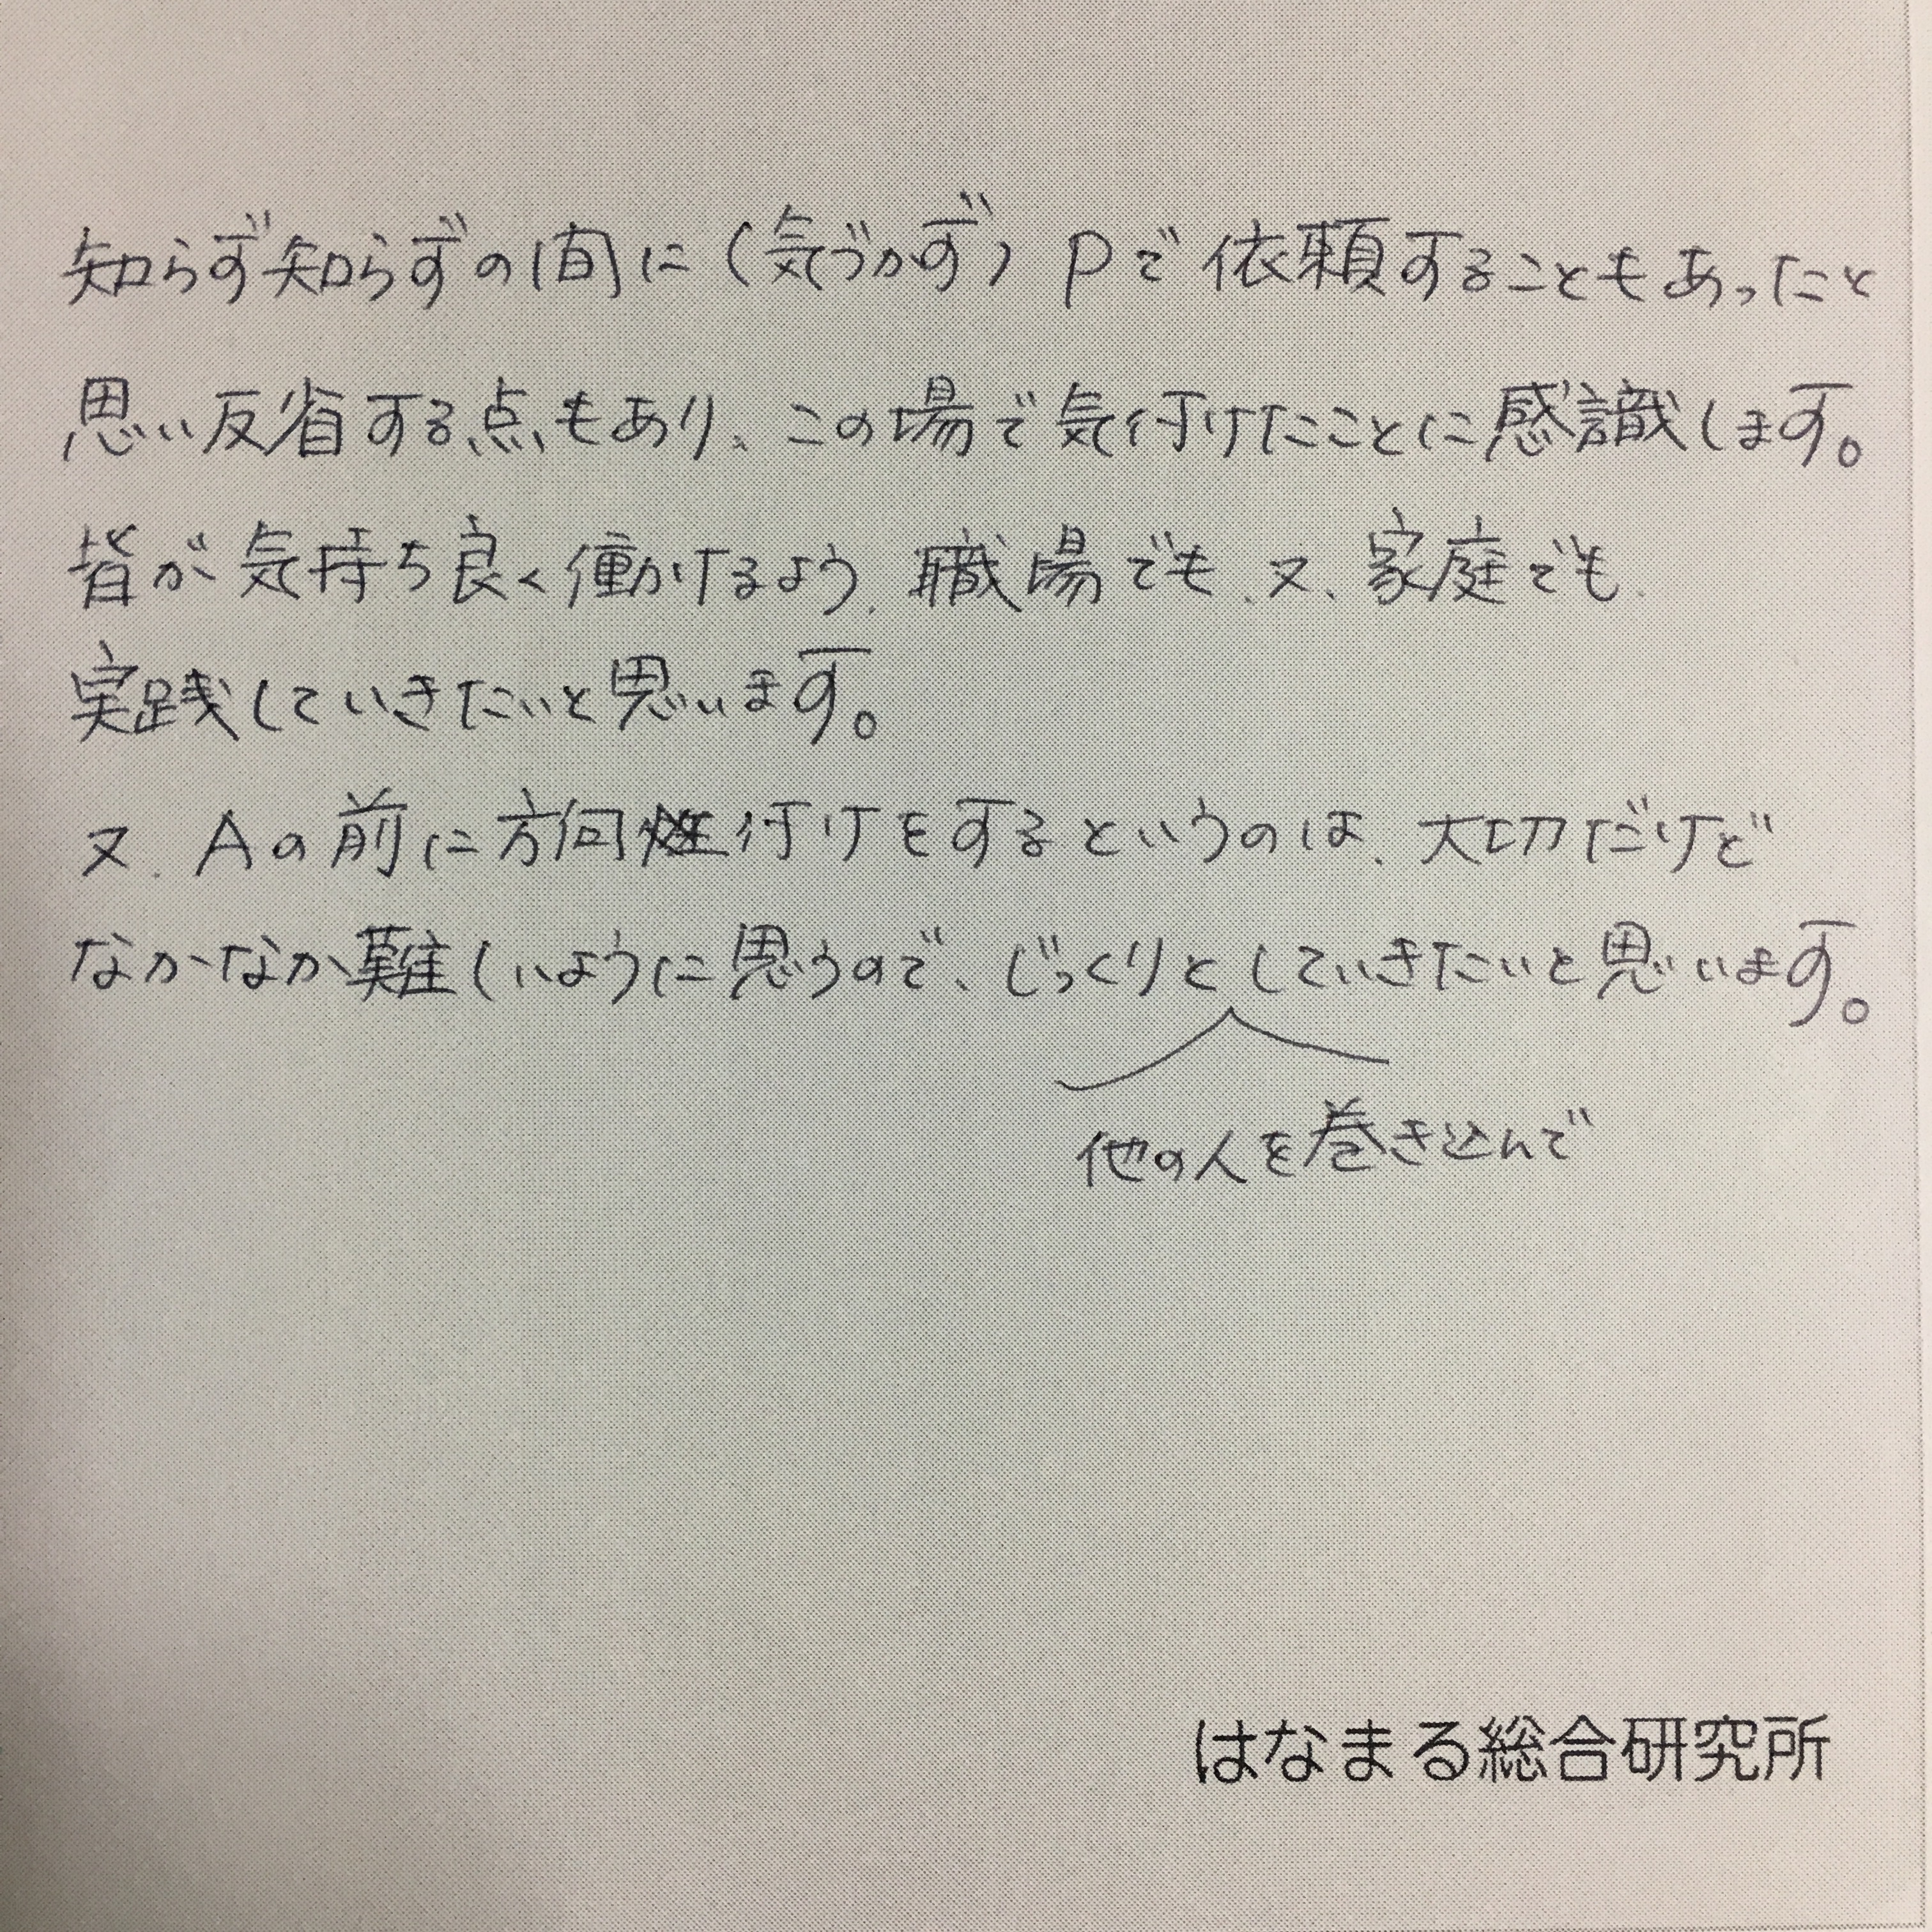 知らず知らずの間に（気づかず）Pで依頼することもあったと
思い反省する点もあり、この場で気付けたことに感識します。
皆が気持ち良く働けるよう、職場でも、又、家庭でも、
実践していきたいと思います。
又、Aの前に方向付けをするというのは、大切だけど
なかなか難しいように思うので、じっくりとしていきたいと思います。
他の人を巻き込んで
はなまる総合研究所